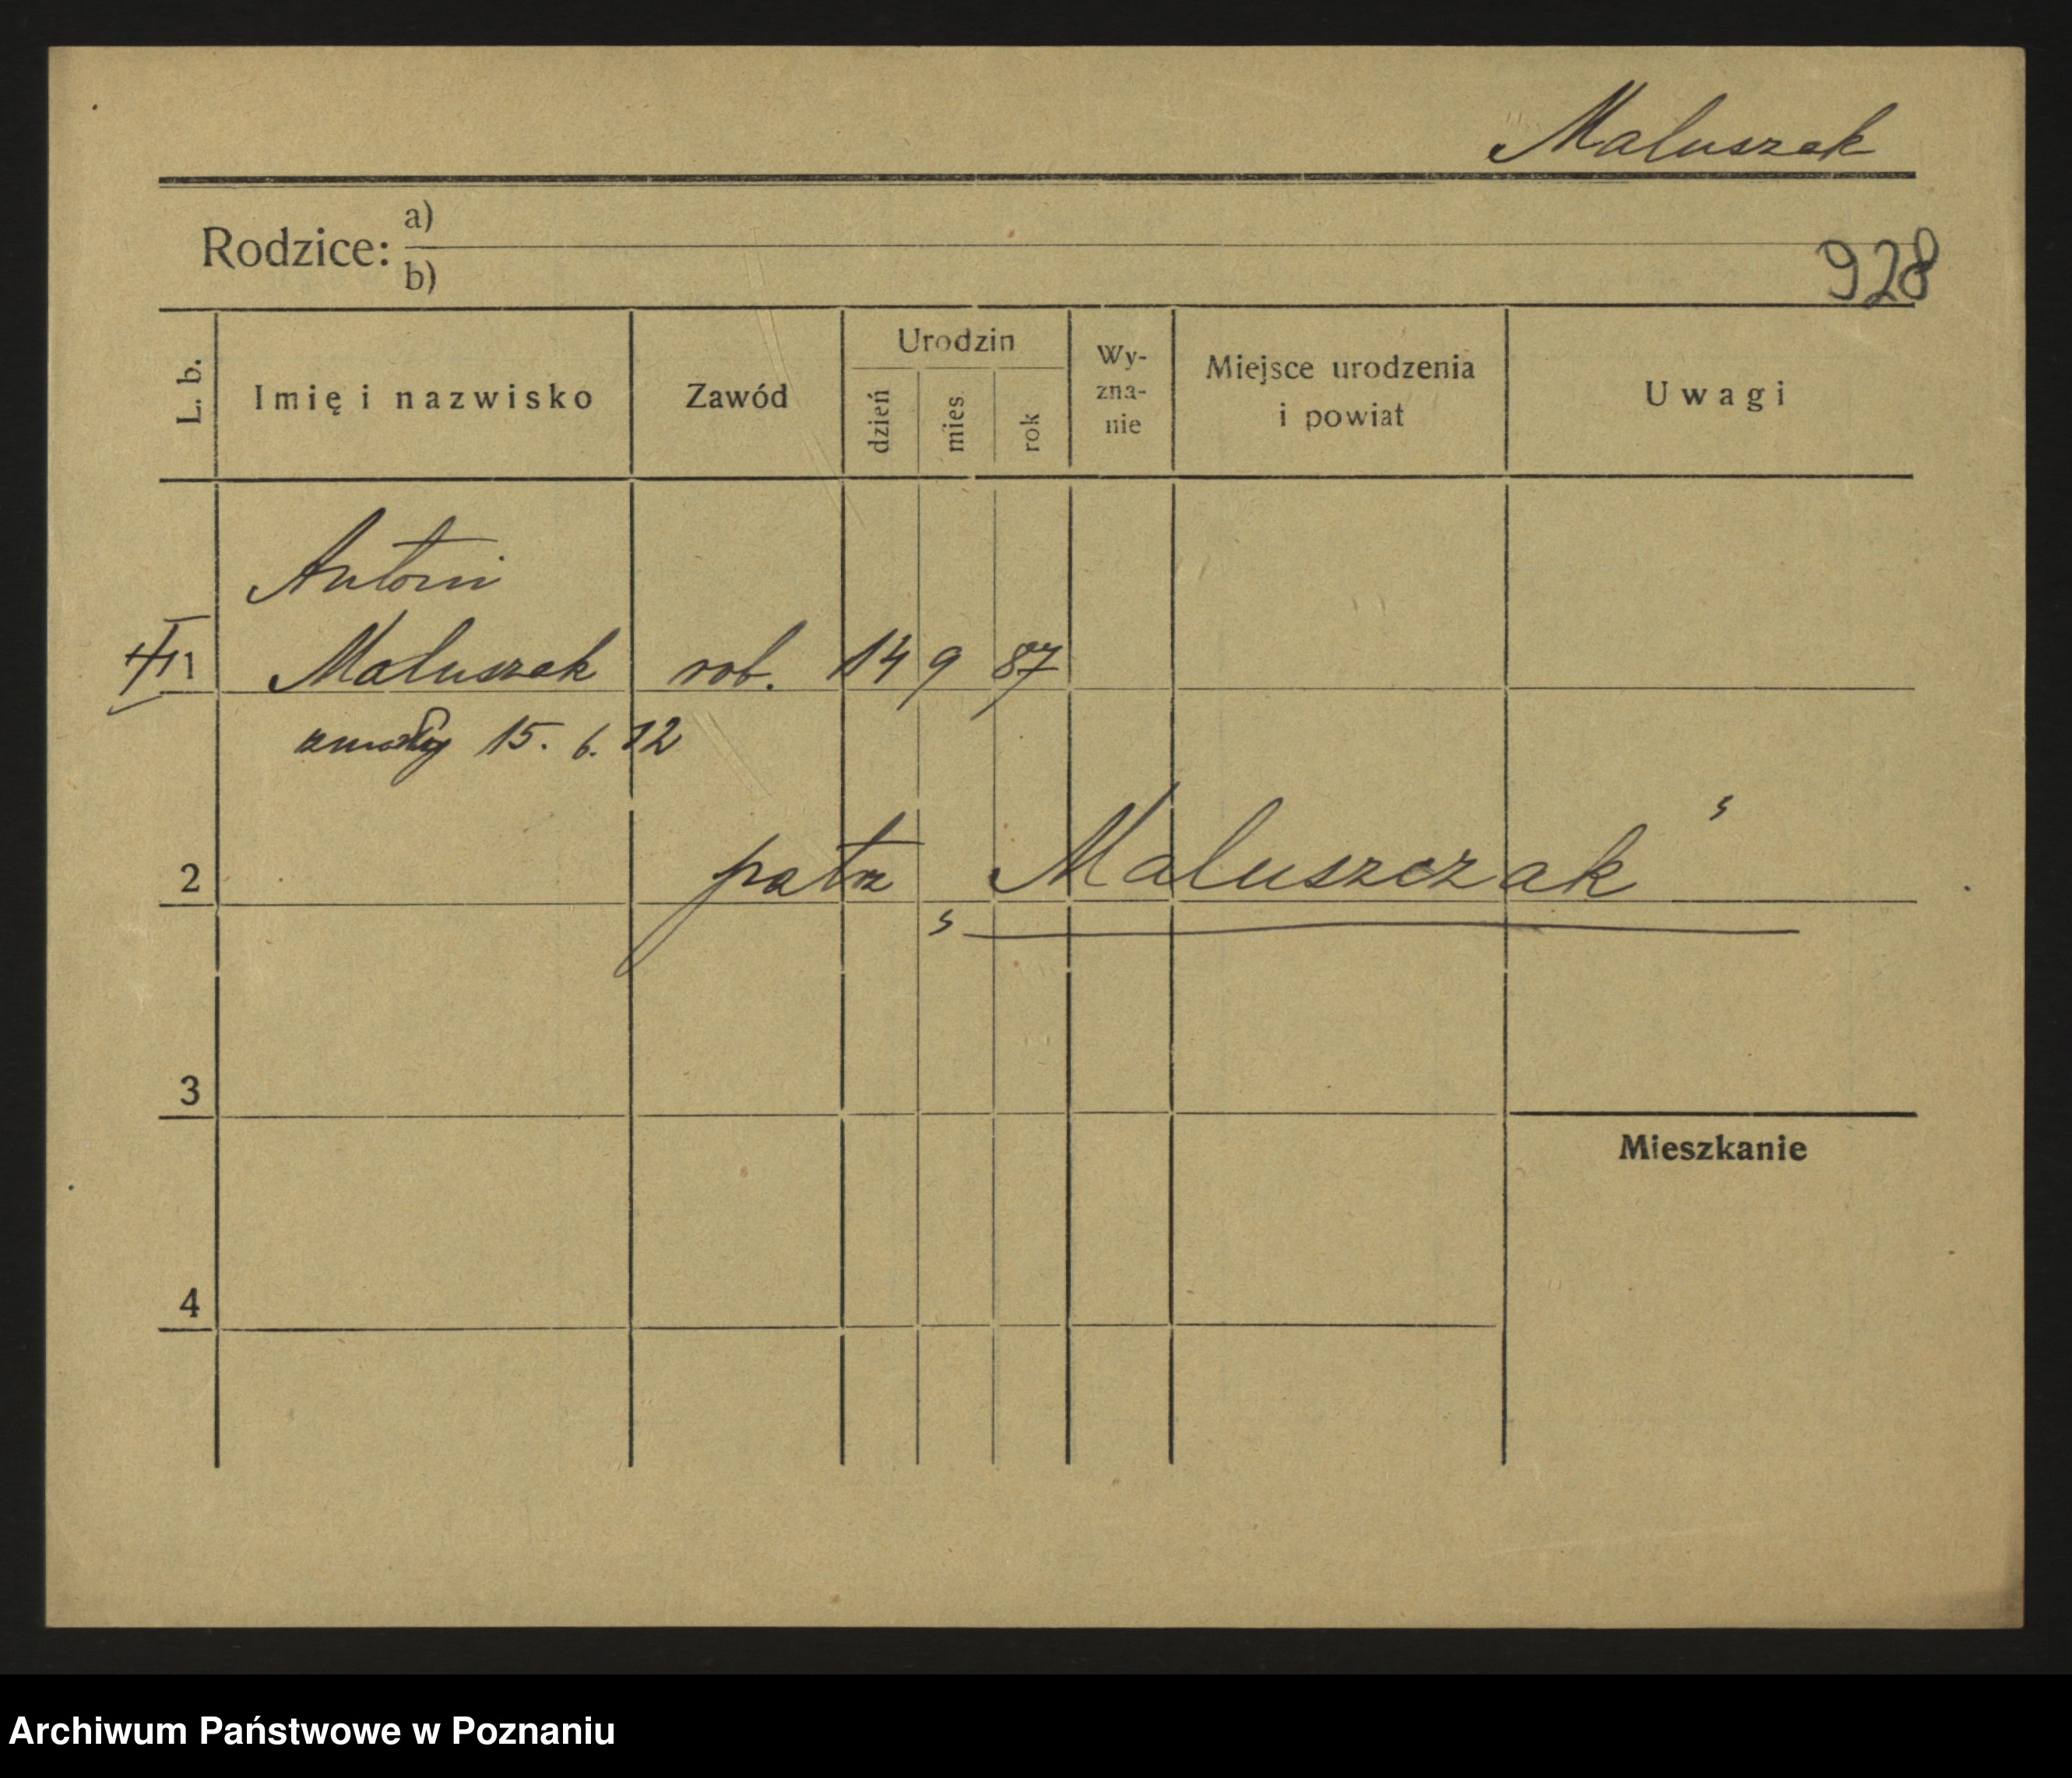 Maluszak
Rodzice: a)
b)
928
L. b.
Imię i nazwisko
Zawód
Urodzin
dzień
mies
rok
Wy-
zna-
nie
Miejsce urodzenia
i powiat
Uwagi
Antoni
1 Maluszak rob. 14 9 87
zmarły 15. 6. 12
2 patrz „Maluszczak"
3
Mieszkanie
4
Archiwum Państwowe w Poznaniu